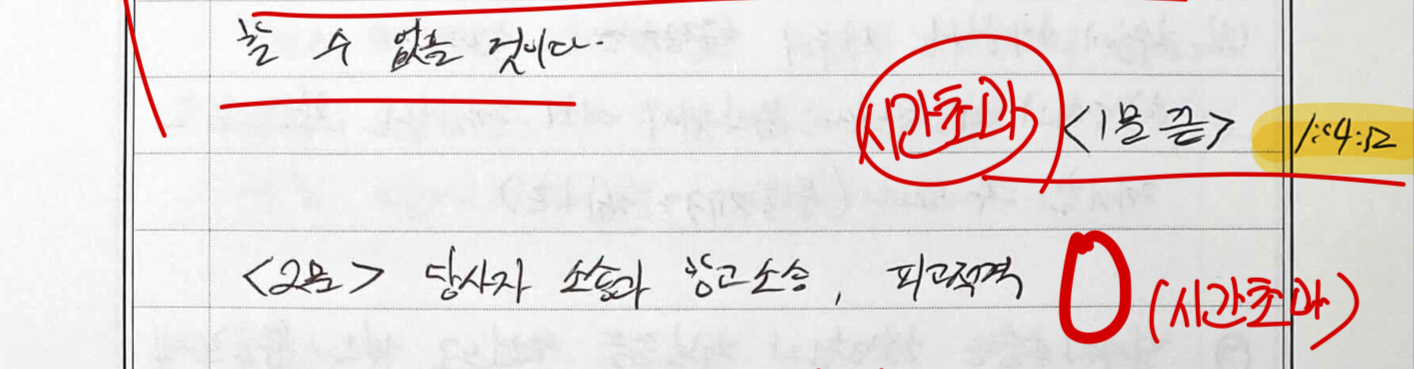 할 수 없을 것이다.
시간초과 <1문 끝> 1:04:52
<2문> 당사자 소송과 항고소송, 피고적격 0 (시간초과)